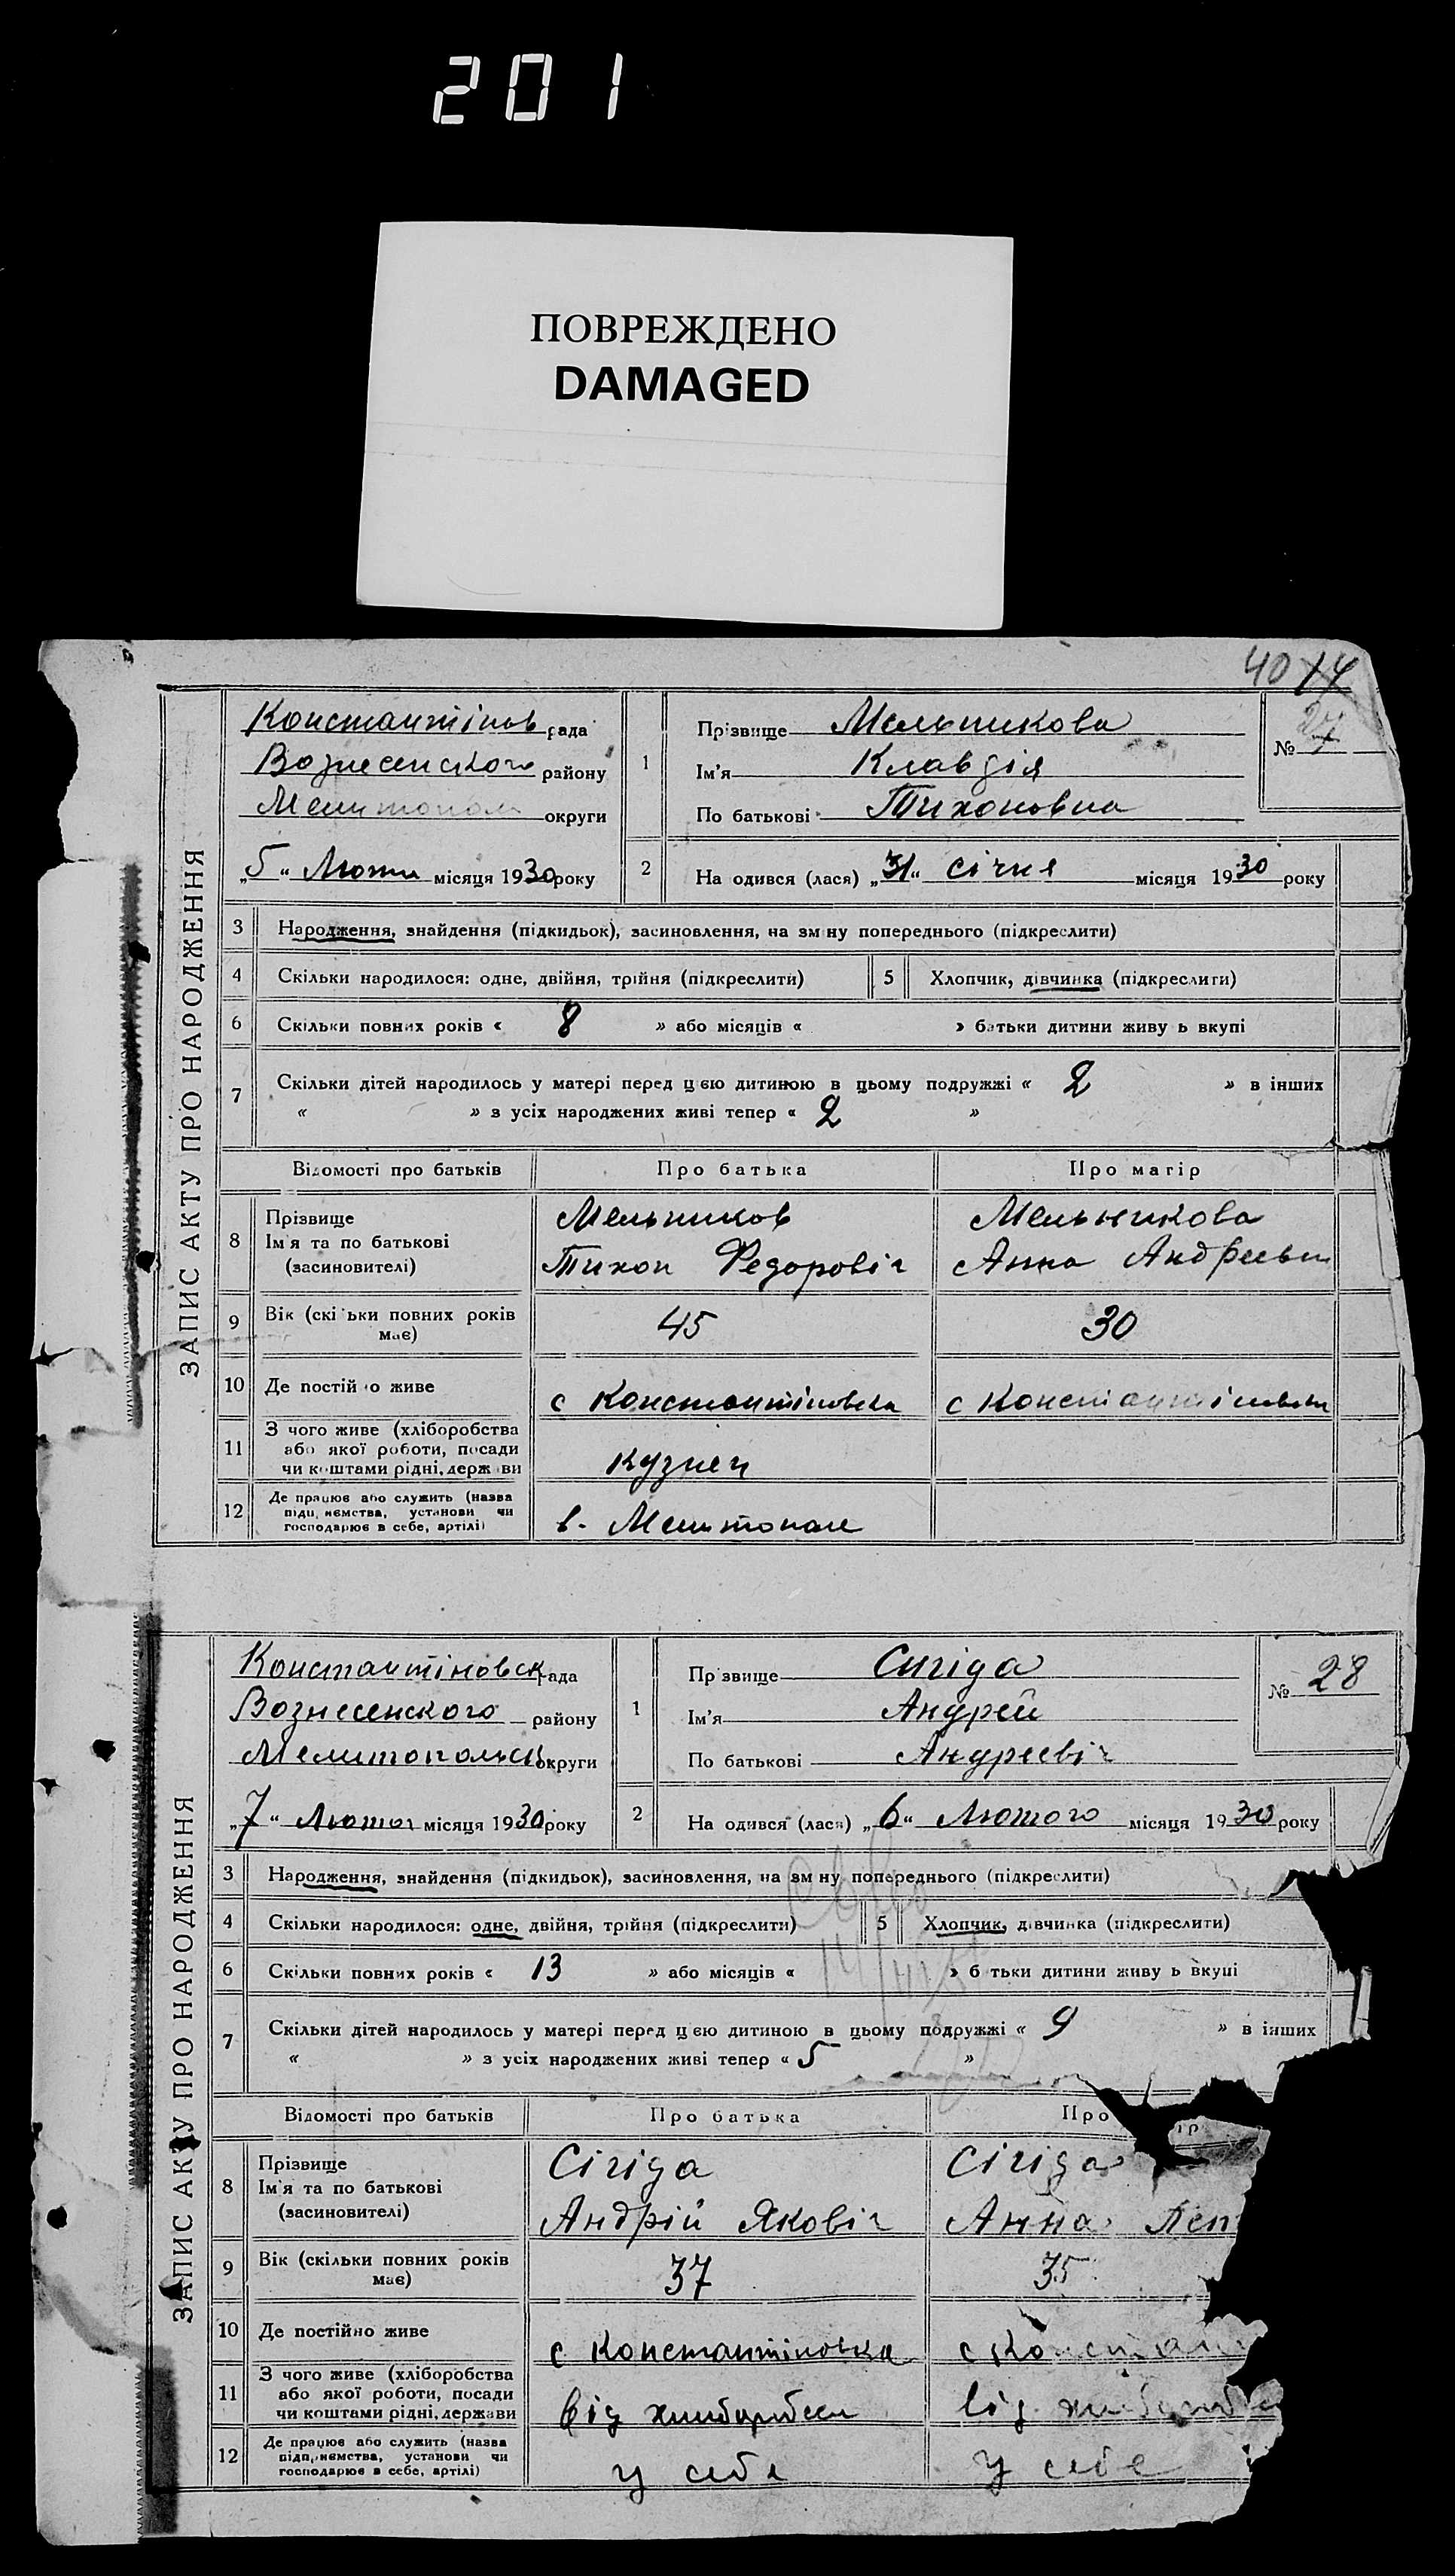 201
ПОВРЕЖДЕНО
DAMAGED
40
ЗАПИС АКТУ ПРО НАРОДЖЕННЯ
Константінов рада
Вознесенского району
Мелитопол округи
„5“ Люти місяця 1930 року
1
Прізвище Мельникова
Ім’я Клавдія
По батькові Тихоновна
№ 27
2
На одився (лася) „31“ січня місяця 1930 року
3 Народження, знайдення (підкидьок), засиновлення, на зм ну попереднього (підкреслити)
4 Скільки народилося: одне, двійня, трійня (підкреслити) 5 Хлопчик, дівчинка (підкреслити)
6 Скільки повних років « 8 » або місяців « » батьки дитини живу ь вкупі
7 Скільки дітей народилось у матері перед цею дитиною в цьому подружжі « 2 » в інших
« » з усіх народжених живі тепер « 2 »
Відомості про батьків Про батька Про матір
8 Прізвище
Ім’я та по батькові
(засиновителі)
Мельников
Тихон Федоровіч
Мельникова
Анна Андреевн
9 Вік (скі ьки повних років
має)
45 30
10 Де постій о живе с Константіновка с Константіновка
11 З чого живе (хліборобства
або якої роботи, посади
чи коштами рідні, держ ви
кузнец
12 Де працює або служить (назва
підп, иємства, установи чи
господарює в себе, артілі)
в. Мелитополе
ЗАПИС АКТУ ПРО НАРОДЖЕННЯ
Константіновск рада
Вознесенского району
Мелитопольск округи
„7“ Лютого місяця 1930 року
1
Пр звище Сигіда
Ім’я Андрей
По батькові Андреевіч
№ 28
2
На одився (лася) „6“ Лютого місяця 1930 року
3 Народження, знайдення (підкидьок), засиновлення, на зм ну попереднього (підкреслити)
4 Скільки народилося: одне, двійня, трійня (підкреслити) 5 Хлопчик, дівчинка (підкреслити)
6 Скільки повних років « 13 » або місяців « » б тьки дитини живу ь вкупі
7 Скільки дітей народилось у матері перед цею дитиною в цьому подружжі « 9 » в інших
« » з усіх народжених живі тепер « 5 »
Відомості про батьків Про батька Про
8 Прізвище
Ім’я та по батькові
(засиновителі)
Сігіда
Андрій Яковіч
Сігіда
Анна
9 Вік (скільки повних років
має)
37 35
10 Де постійно живе с Константіновка с Констан
11 З чого живе (хліборобства
або якої роботи, посади
чи коштами рідні, держави
від від
12 Де працює або служить (назва
підприємства, установи чи
господарює в себе, артілі)
у себе у себе